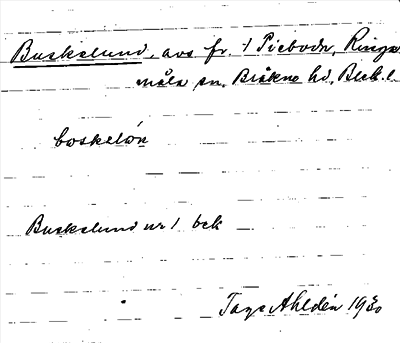 Buskelund, avs. fr. 1 Piebodn, Ringa-
måla sn. Bräkne hd, Blek. l.
boskelön
Buskelund nr 1 bek
Tage Ahldén 1930